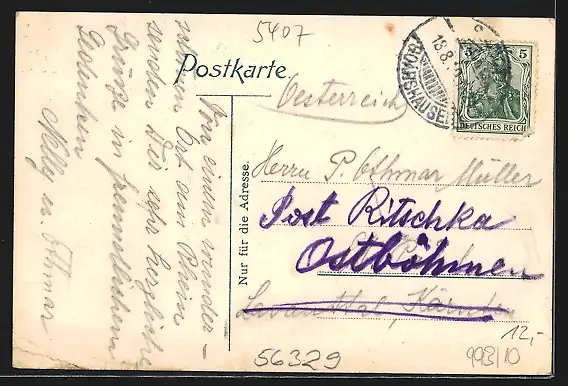 5407
Postkarte.
Oesterreich
5 5
DEUTSCHES REICH
18.8.
Von einem wunder-
schönen Ort am Rhein
senden Dir sehr herzliche
Grüße in freundlichem
Gedenken
Nelly u. Othmar
Nur für die Adresse.
Herrn P. Othmar Müller
Post Ritschka
Ostböhmen
Lavanttal, Kärnten
12,-
56329
993/10